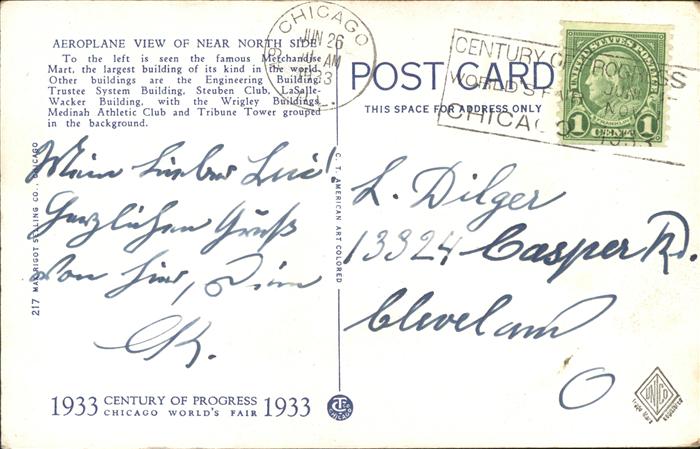 AEROPLANE VIEW OF NEAR NORTH SIDE
To the left is seen the famous Merchandise
Mart, the largest building of its kind in the world.
Other buildings are the Engineering Building,
Trustee System Building, Steuben Club, LaSalle-
Wacker Building, with the Wrigley Building,
Medinah Athletic Club and Tribune Tower grouped
in the background.
Mein lieber
Herzlichen Gruß
von hier, Dein
1933 CENTURY OF PROGRESS
CHICAGO WORLD'S FAIR 1933
217 MAX RIGOT SELLING CO., CHICAGO
C. T. AMERICAN ART COLORED
CHICAGO
JUN 26
AM
POST CARD
THIS SPACE FOR ADDRESS ONLY
CENTURY OF PROGRESS
WORLD'S FAIR
CHICAGO
1933
UNITED STATES POSTAGE
FRANKLIN
1 CENT 1
L. Dilger
13324 Casper Rd.
Cleveland
O
CHICAGO
UNICO
Trade Mark